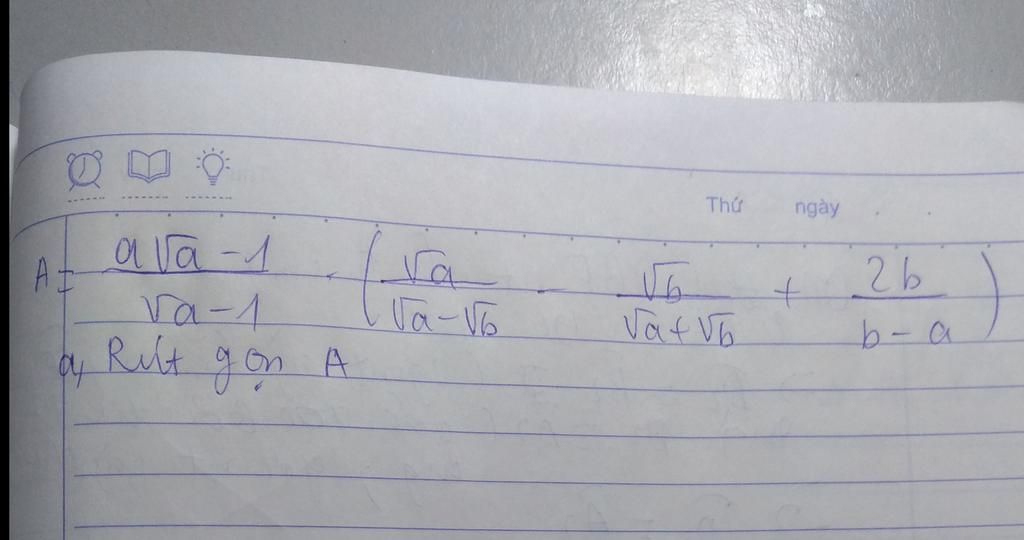 Thứ ngày
A = \frac{a\sqrt{a} - 1}{\sqrt{a} - 1} \cdot \left( \frac{\sqrt{a}}{\sqrt{a} - \sqrt{b}} - \frac{\sqrt{b}}{\sqrt{a} + \sqrt{b}} + \frac{2b}{b - a} \right)
a, Rút gọn A